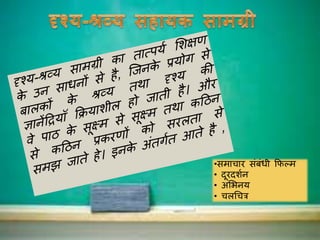 दृश्य-श्रव्य सहायक सामग्री
दृश्य-श्रव्य सामग्री का तात्पर्य शिक्षण
के उन साधनों से है, जिनके प्रयोग से
बालकों के श्रव्य तथा दृश्य की
ज्ञानेंद्रियाँ क्रियाशील हो जाती है। और
वे पाठ के सूक्ष्म से सूक्ष्म तथा कठिन
से कठिन प्रकरणों को सरलता से
समझ जाते हे। इनके अंतर्गत आते है ,
•समाचार संबंधी फिल्म
• दूरदर्शन
• अभिनय
• चलचित्र